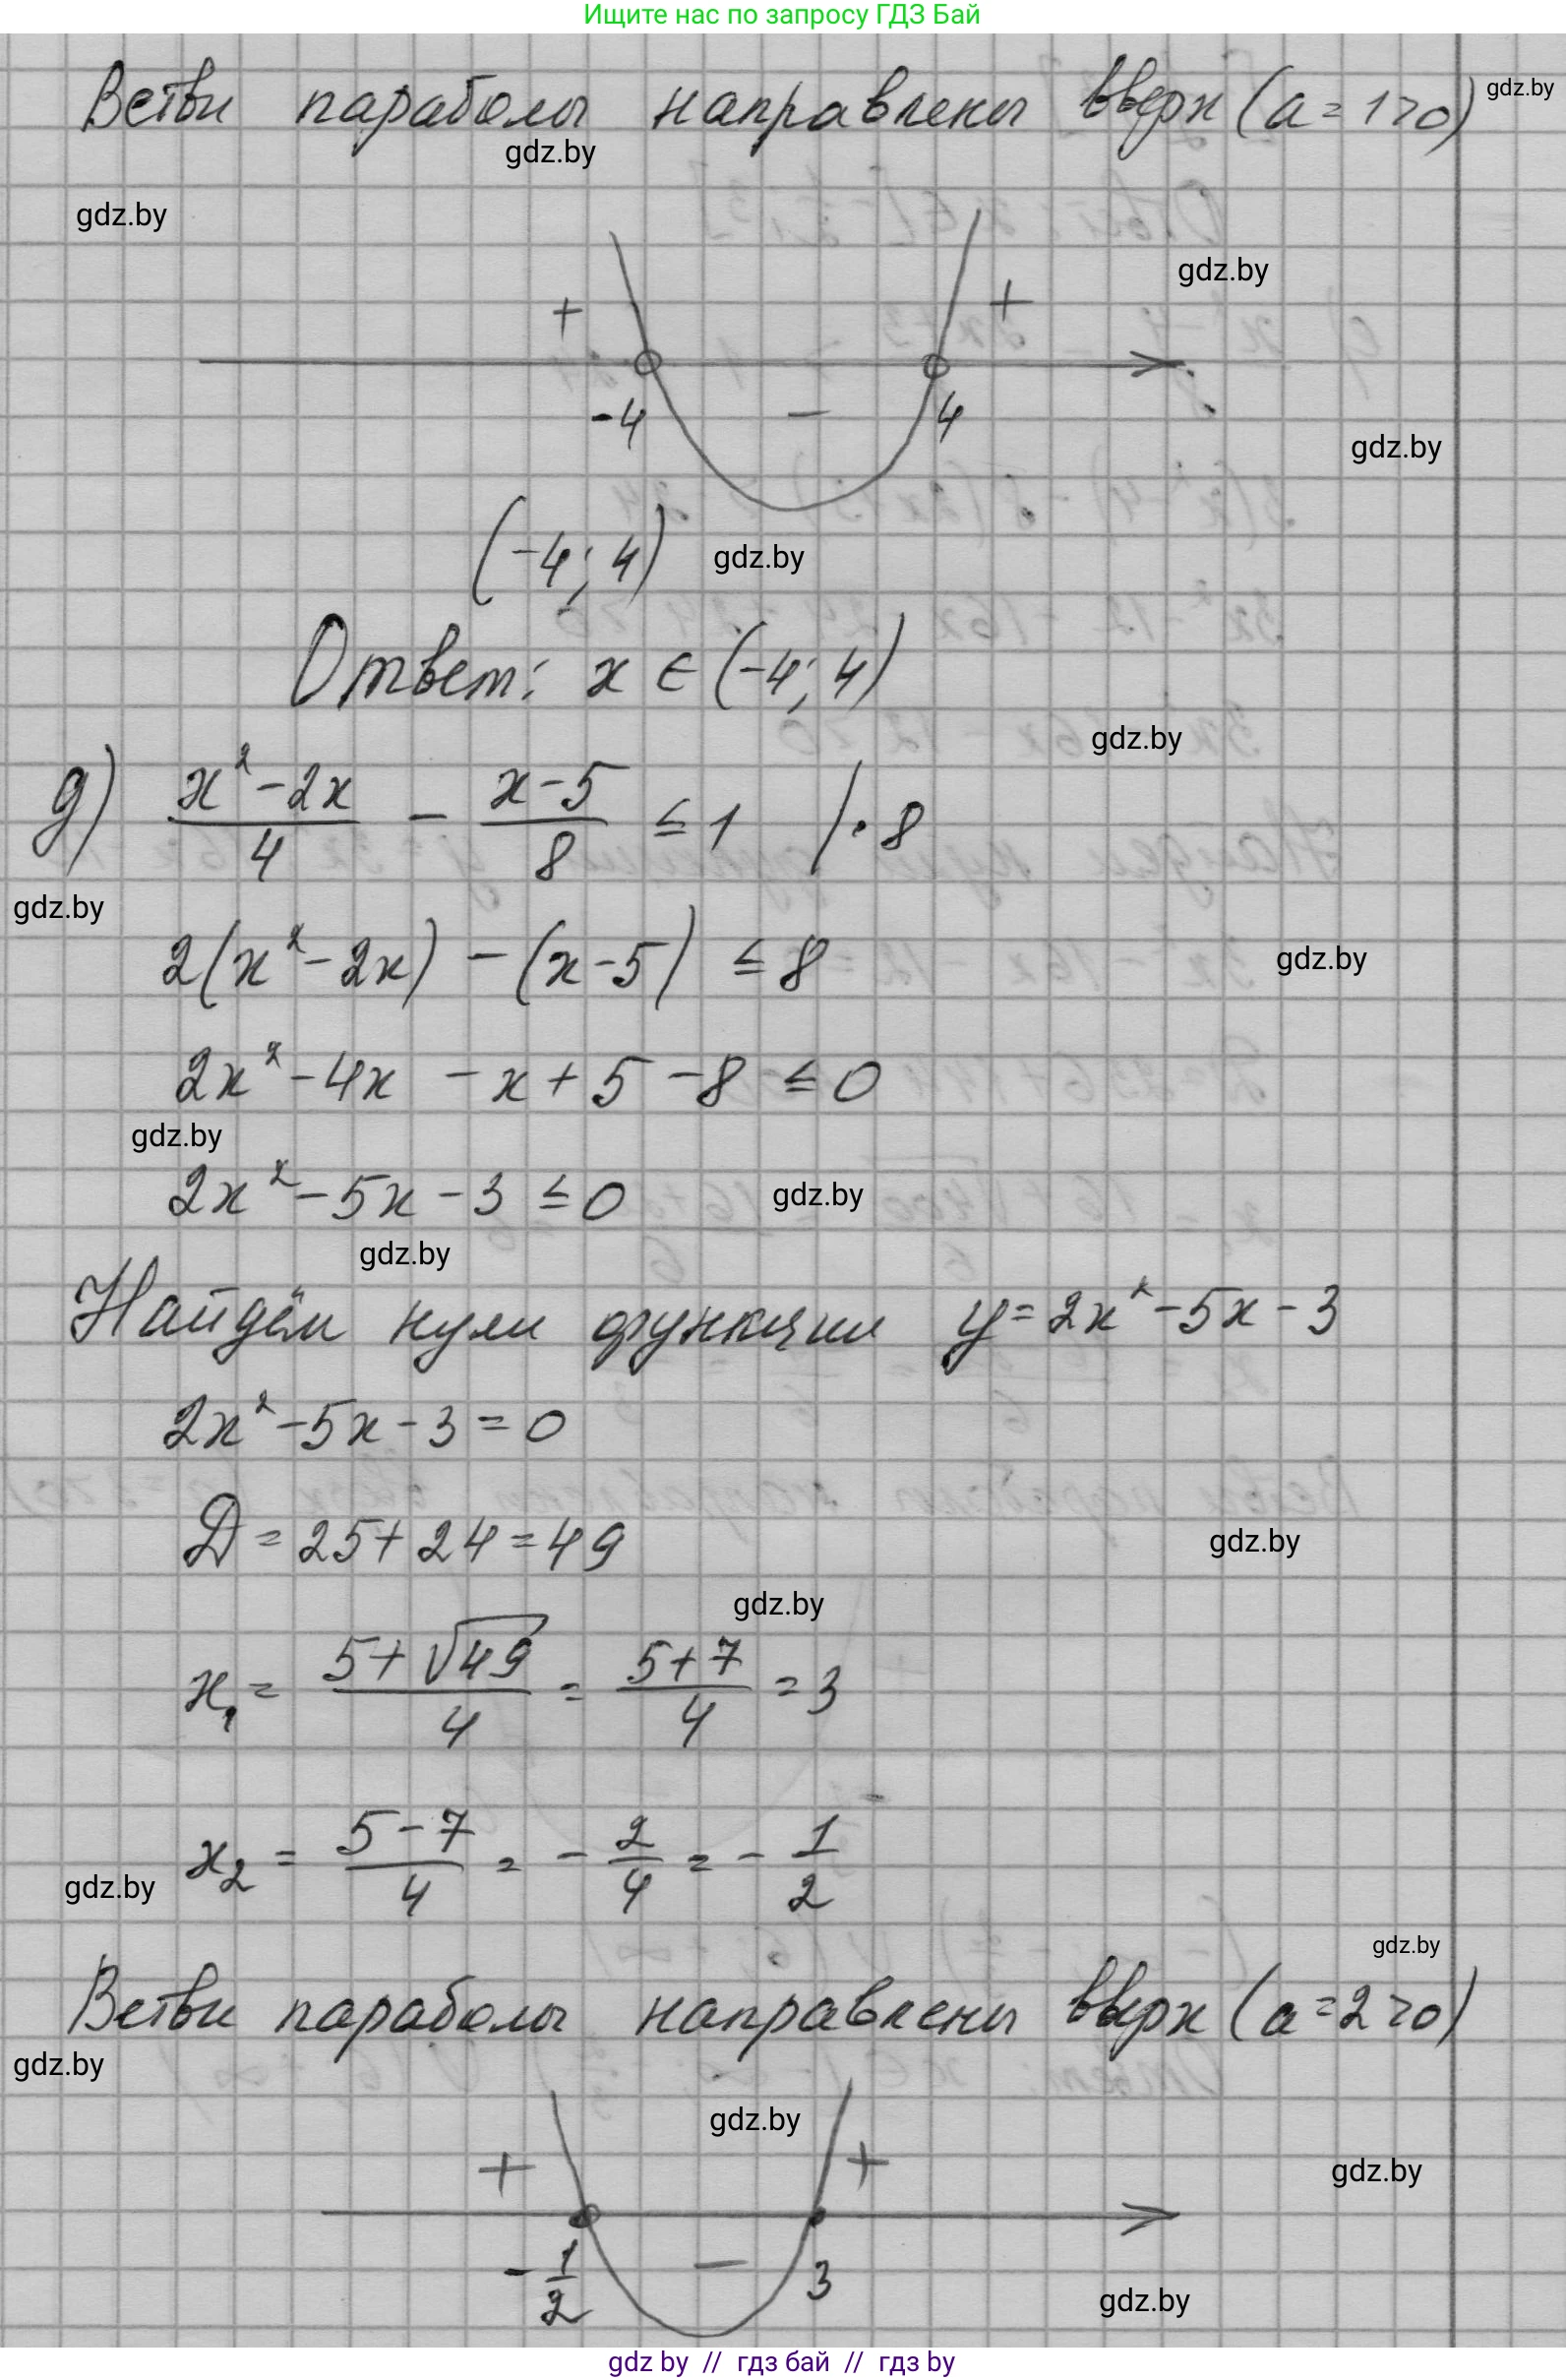 Ищите нас по запросу ГДЗ Бай
Ветви параболы направлены вверх (a = 1 > 0)
gdz.by
gdz.by
gdz.by
gdz.by
+ +
-4 − 4
gdz.by
(-4; 4)
gdz.by
Ответ: x ∈ (-4; 4)
gdz.by
д) (x² - 2x)/4 - (x - 5)/8 ≤ 1 /· 8
gdz.by
2(x² - 2x) - (x - 5) ≤ 8
gdz.by
2x² - 4x - x + 5 - 8 ≤ 0
gdz.by
2x² - 5x - 3 ≤ 0
gdz.by
gdz.by
Найдём нули функции y = 2x² - 5x - 3
2x² - 5x - 3 = 0
D = 25 + 24 = 49
gdz.by
gdz.by
x₁ = (5 + √49)/4 = (5 + 7)/4 = 3
x₂ = (5 - 7)/4 = - 2/4 = - 1/2
gdz.by
gdz.by
Ветви параболы направлены вверх (a = 2 > 0)
gdz.by
gdz.by
+ +
gdz.by
- 1/2 − 3
gdz.by
gdz by // гдз бай // гдз by